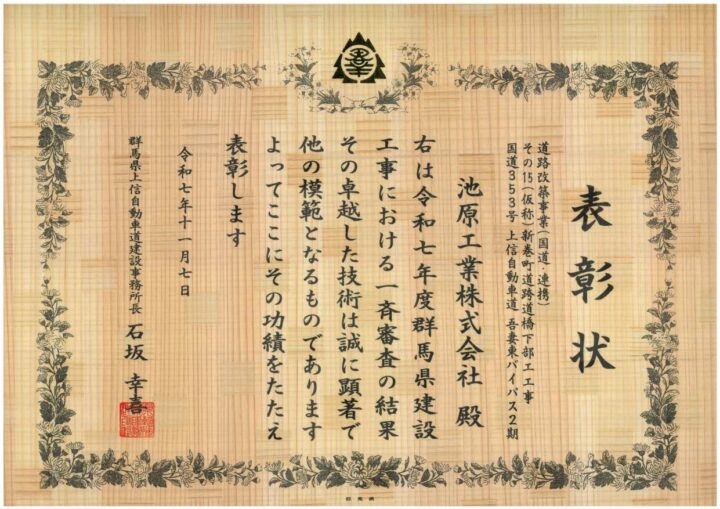 表彰状
道路改築事業(国道・連携)
その15(仮称)新巻町道跨道橋下部工工事
国道353号 上信自動車道 吾妻東バイパス2期
池原工業株式会社 殿
右は令和七年度群馬県建設
工事における一斉審査の結果
その卓越した技術は誠に顕著で
他の模範となるものであります
よってここにその功績をたたえ
表彰します
令和七年十一月七日
群馬県上信自動車道建設事務所長 石坂 幸喜